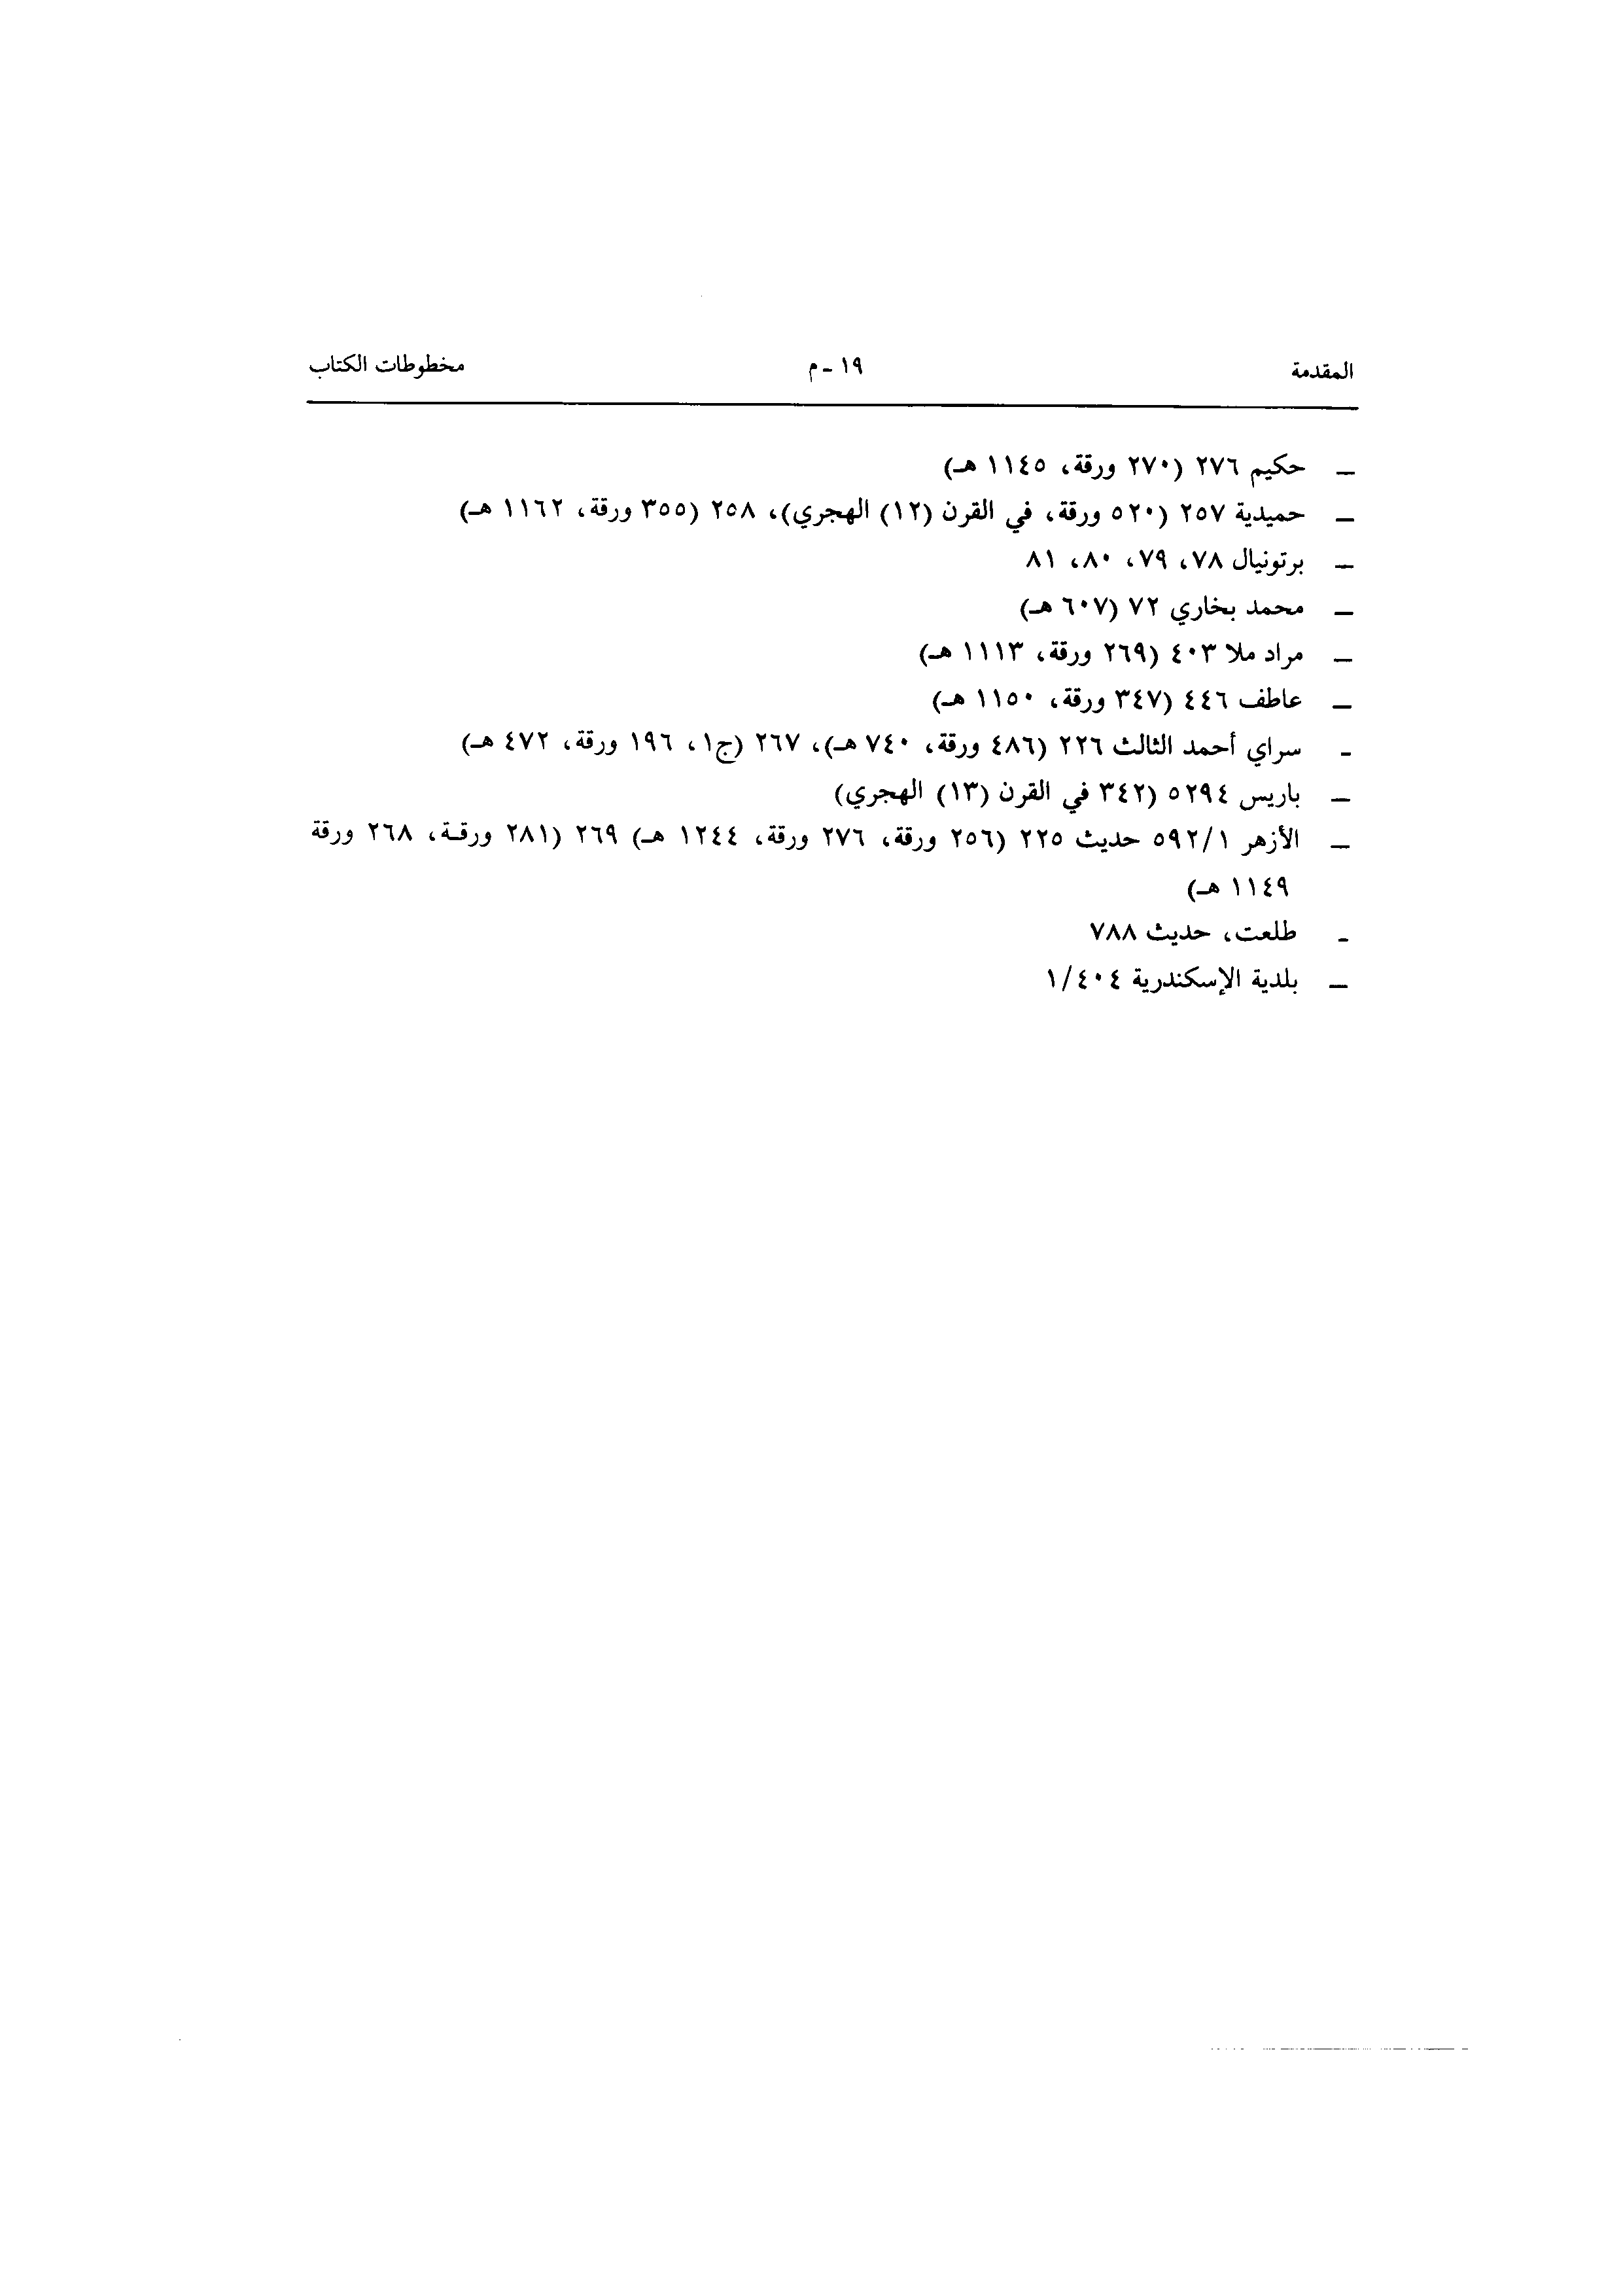 المقدمة ١٩ - م مخطوطات الكتاب
— حكيم ٢٧٦ (٢٧٠ ورقة، ١١٤٥ هـ)
— حميدية ٢٥٧ (٥٢٠ ورقة، في القرن (١٢) الهجري)، ٢٥٨ (٣٥٥ ورقة، ١١٦٢ هـ)
— برتونيال ٧٨، ٧٩، ٨٠، ٨١
— محمد بخاري ٧٢ (٦٠٧ هـ)
— مراد ملا ٤٠٣ (٢٦٩ ورقة، ١١١٣ هـ)
— عاطف ٤٤٦ (٣٤٧ ورقة، ١١٥٠ هـ)
- سراي أحمد الثالث ٢٢٦ (٤٨٦ ورقة، ٧٤٠ هـ)، ٢٦٧ (ج١، ١٩٦ ورقة، ٤٧٢ هـ)
— باريس ٥٢٩٤ (٣٤٢ في القرن (١٣) الهجري)
— الأزهر ٥٩٢/١ حديث ٢٢٥ (٢٥٦ ورقة، ٢٧٦ ورقة، ١٢٤٤ هـ) ٢٦٩ (٢٨١ ورقـة، ٢٦٨ ورقة
١١٤٩ هـ)
- طلعت، حديث ٧٨٨
— بلدية الإسكندرية ١/٤٠٤